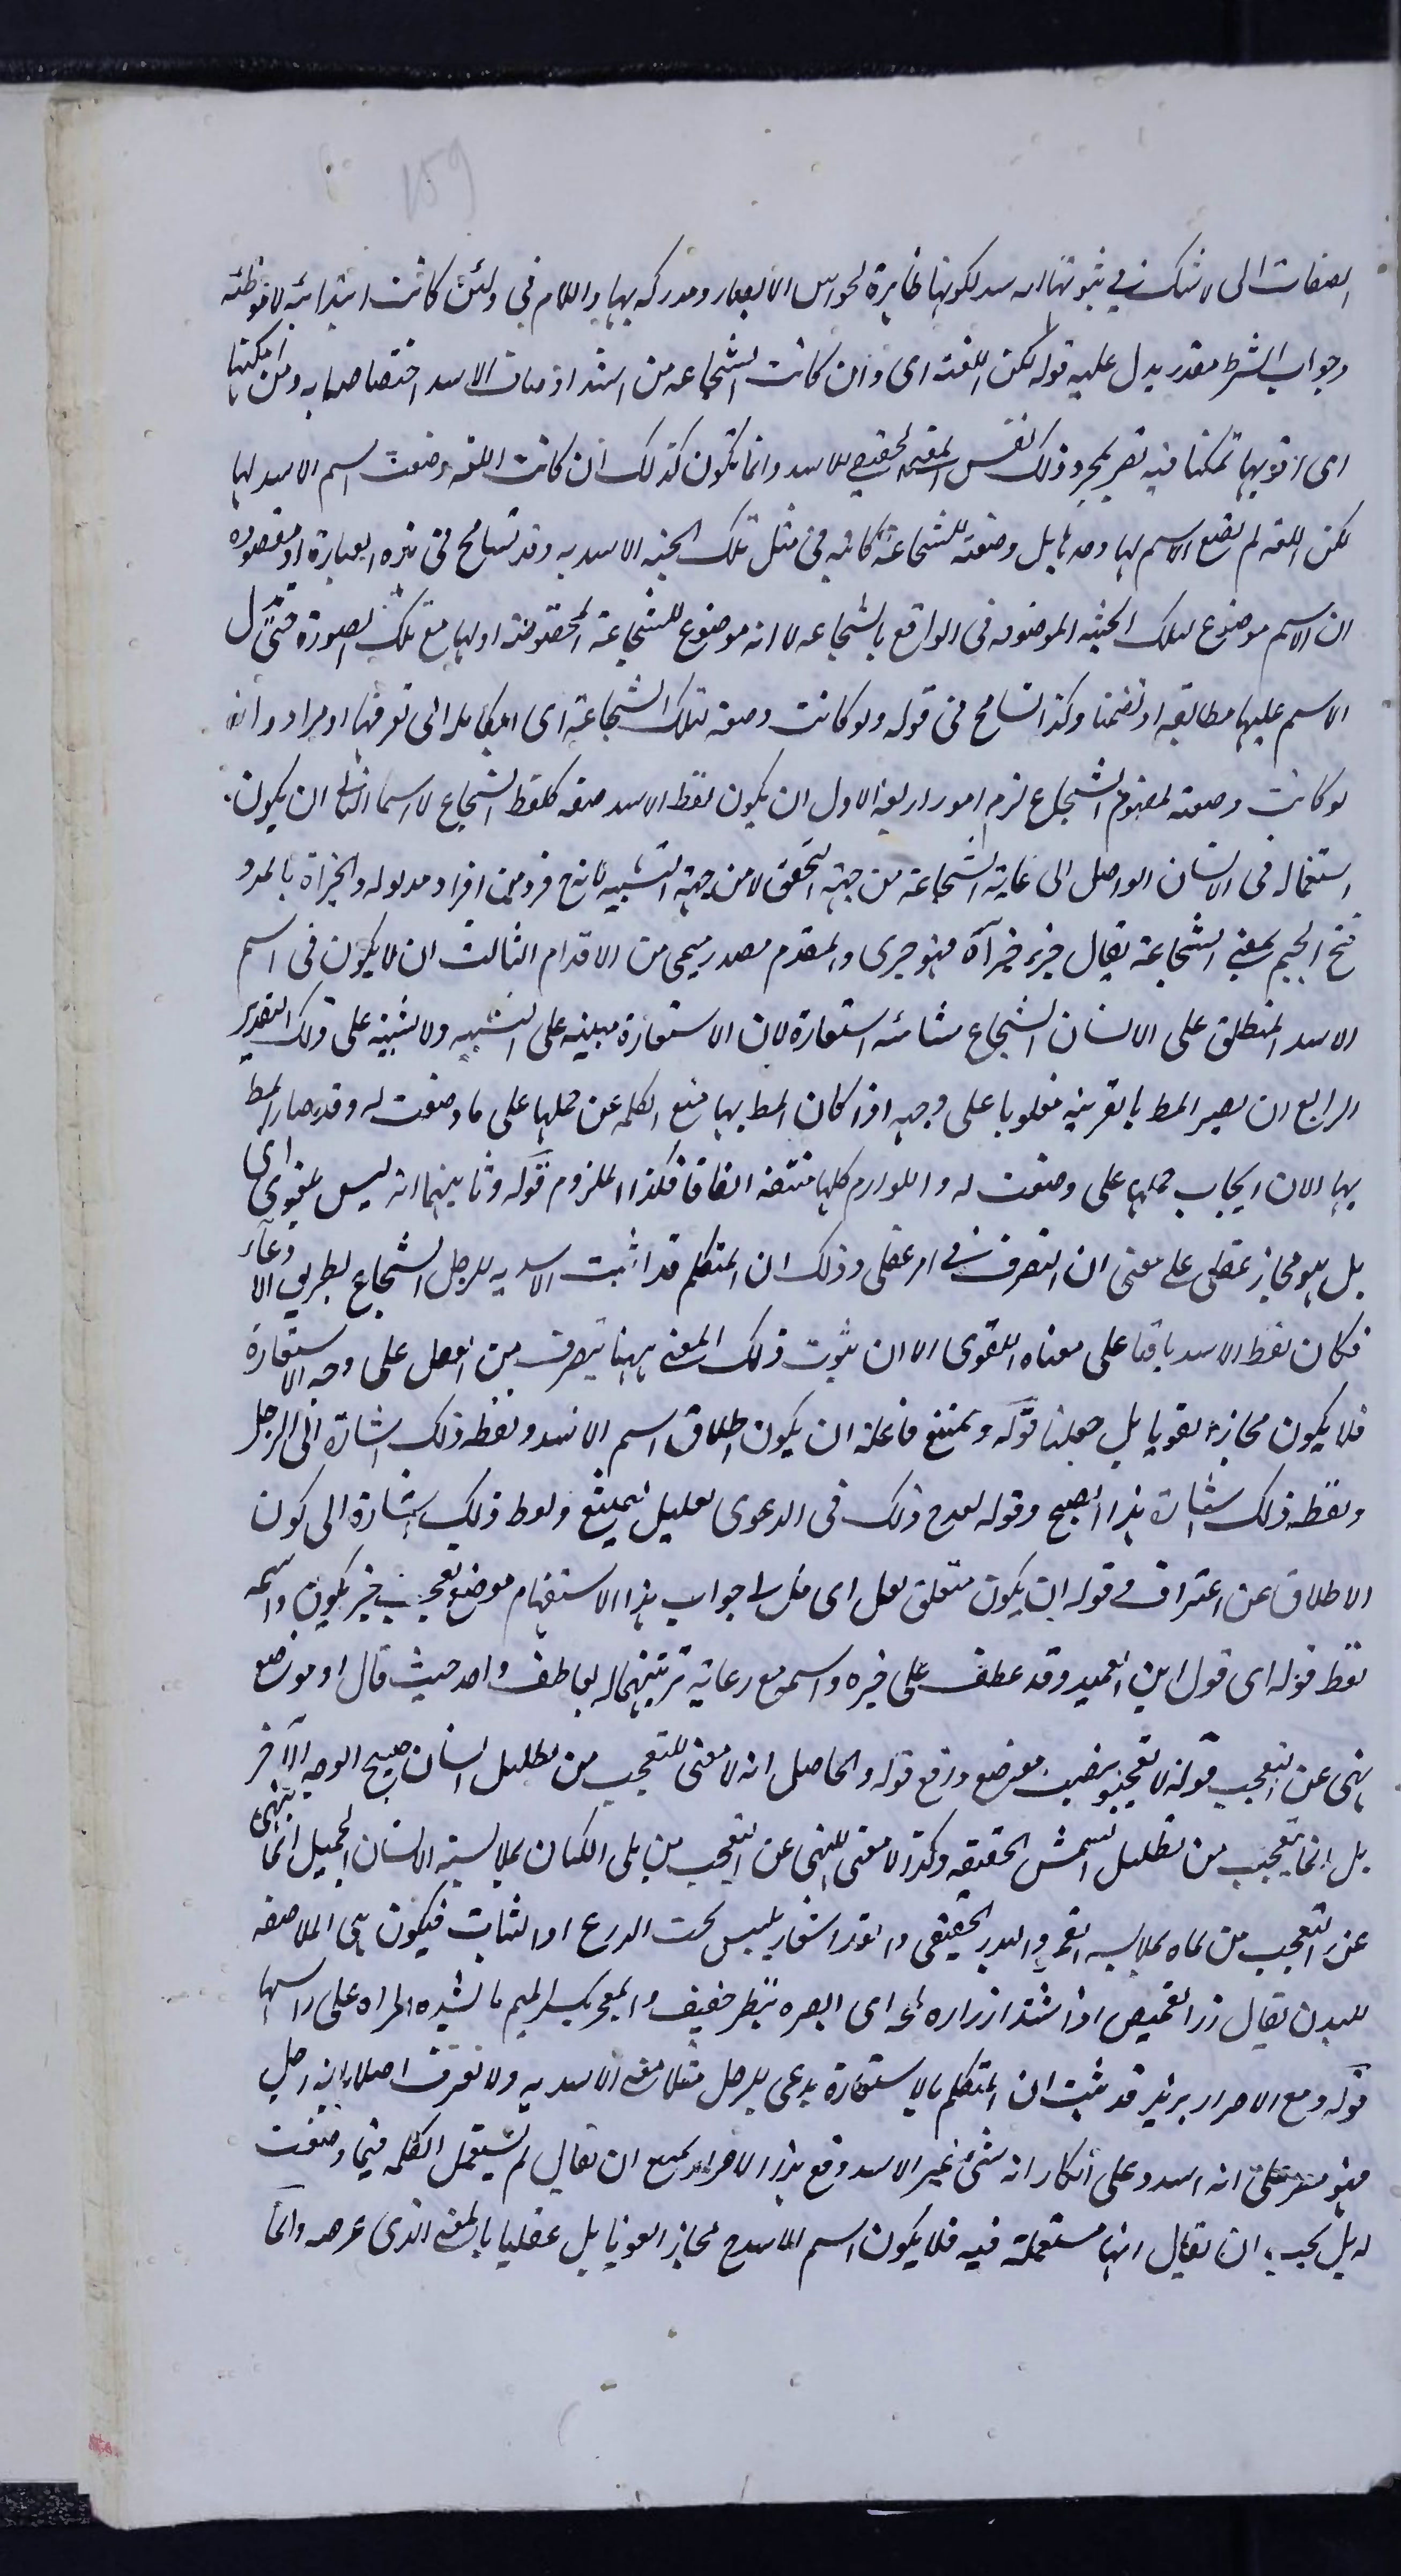 159
الصفات التى لا شك فى ثبوتها للاسد لكونها ظاهرة لحواس الابصار ومدركة بها واللام فى ولئن كانت ابتدائية لا موطئة
وجواب الشرط مقدر يدل عليه قوله لكن اللغة اى وان كانت الشجاعة من اشد اوصاف الاسد اختصاصا به وامكنها
اى اقويها تمكنا فيه تصير بمجرد ذلك نفس المعنى الحقيقى للاسد وانما تكون كذلك ان كانت اللغة وضعت اسم الاسد لها
لكن اللغة لم تضع الاسم لها وحدها بل وضعته للشجاعة كائنة فى مثل تلك الجثة الاسدية وقد تسامح فى هذه العبارة اذ مقصوده
ان الاسم موضوع لتلك الجثة الموصوفة فى الواقع بالشجاعة لا انه موضوع للشجاعة المخصوصة او لها مع تلك الصورة حتى يدل
الاسم عليها مطابقة او تضمنا وكذا تسامح فى قوله ولو كانت وضعته لتلك الشجاعة اى الكاملة التى تعرفها اذ مراده انه
لو كانت وضعته لمفهوم الشجاع لزم امور اربعة الاول ان يكون لفظ الاسد صفة كلفظ الشجاع لا اسما الثانى ان يكون
استعماله فى الانسان الواصل الى غاية الشجاعة من جهة التحقق لا من جهة التشبيه لانه ح فرد من افراد مدلوله والجرأة بالمد و
فتح الجيم بمعنى الشجاعة يقال جرء جرآة فهو جرى والمقدم مصدر ميمى من الاقدام الثالث ان لا يكون فى اسم
الاسد المنطلق على الانسان الشجاع شائبة استعارة لان الاستعارة مبنية على التشبيه ولا تشبيه على ذلك التقدير
الرابع ان يصير المط بالقرينة مقلوبا على وجهه اذا كان المط بها منع الكلمة عن حملها على ما وضعت له وقد صار المط
بها الان ايجاب حملها على وضعت له واللوازم كلها منتفة اتفاقا فكذا الملزوم قوله وثانيهما انه ليس بلغوى اى
بل هو مجاز عقلى على معنى ان التصرف فى امر عقلى وذلك ان المتكلم قد اثبت الاسدية للرجل الشجاع بطريق الادعاء
فكان لفظ الاسد باقيا على معناه اللغوى الا ان ثبوت ذلك المعنى ههنا بتصرف من العقل على وجه الاستعارة
فلا يكون مجازا لغويا بل عقليا قوله ويمتنع فاعله ان يكون اطلاق اسم الاسد ولفظه ذلك اشارة الى الرجل
ولفظه ذلك اشارة هذا الصبح وقوله لعدم ذلك فى الدعوى تعليل ليمتنع ولفظ ذلك اشارة الى كون
الاطلاق عن اعتراف فى قوله ان يكون متعلق لعل اى جواب هذا الاستفهام موضع تعجب خبر يكون واسمه
لفظ قوله اى قول ابن العميد وقد عطف على خبره واسمه مع رعاية ترتيبهما له بعاطف واحد حيث قال او موضع
نهى عن التعجب قوله لا تعجبوا بنصب موضع ورفع قوله والحاصل انه لا معنى للتعجب من تظليل انسان صبيح الوجه الآخر
بل انما يتعجب من تظليل الشمس الحقيقة وكذا لا معنى للنهى عن التعجب من بلى الكتان بملابسة الانسان الجميل انما ينهى
عن التعجب من بلاه بملابسة القمر والبدر الحقيقى والغلالة شعار يلبس تحت الدرع او الثياب فيكون هى الملاصقة
للبدن يقال زر القميص اذا شد ازراره لمحه اى ابصره بنظر خفيف والمعجر بكسر الميم ما تشده المراة على راسها
قوله ومع الاصرار بزيد قد يثبت ان المتكلم بالاستعارة يدعى للرجل مثلا معنى الاسدية ولا يعترف اصلا بانه رجل
فهو مصر على انه اسد وعلى انكار انه شئ غير الاسد ومع هذا الاصرار يمتنع ان يقال لم يستعمل الكلمة فيما وضعت
له بل يجب ان يقال انها مستعملة فيه فلا يكون اسم الاسد ح مجازا لغويا بل عقليا بالمعنى الذى عرفه وانما